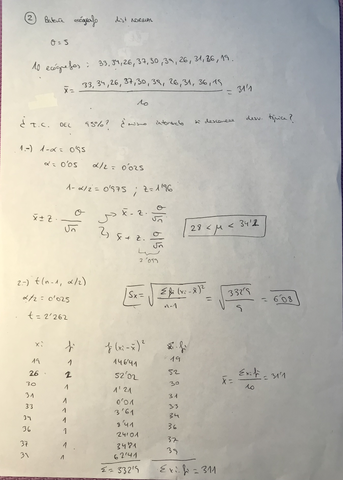 ②
σ = 5
10 ecógrafos: 33, 34, 26, 37, 30, 39, 26, 31, 36, 19.
x̄ = 33, 34, 26, 37, 30, 39, 26, 31, 36, 19 / 10 = 31'1
¿ I.C. DEL 95%? ¿ mismo intervalo si desconoce desv. típica?
1.-) 1-α = 0'95
α = 0'05 α/2 = 0'025
1-α/2 = 0'975 ; Z = 1'96
x̄ ± z · σ/√n
x̄ - z · σ/√n
x̄ + z · σ/√n
28 < μ < 34'2
2-) t(n-1, α/2)
α/2 = 0'025
t = 2'262
Sx = √ Σ fi (xi - x̄)² / n-1 = √ 332'9 / 9 = 6'08
xi fi f(xi-x̄)² xi·fi
19 1 146'41 19
26 2 52'02 52
30 1 1'21 30
31 1 0'01 31
33 1 3'61 33
34 1 8'41 34
36 1 24'01 36
37 1 34'81 37
39 1 62'41 39
Σ = 332'9 Σ xi·fi = 311
x̄ = Σ xi·fi / 10 = 31'1